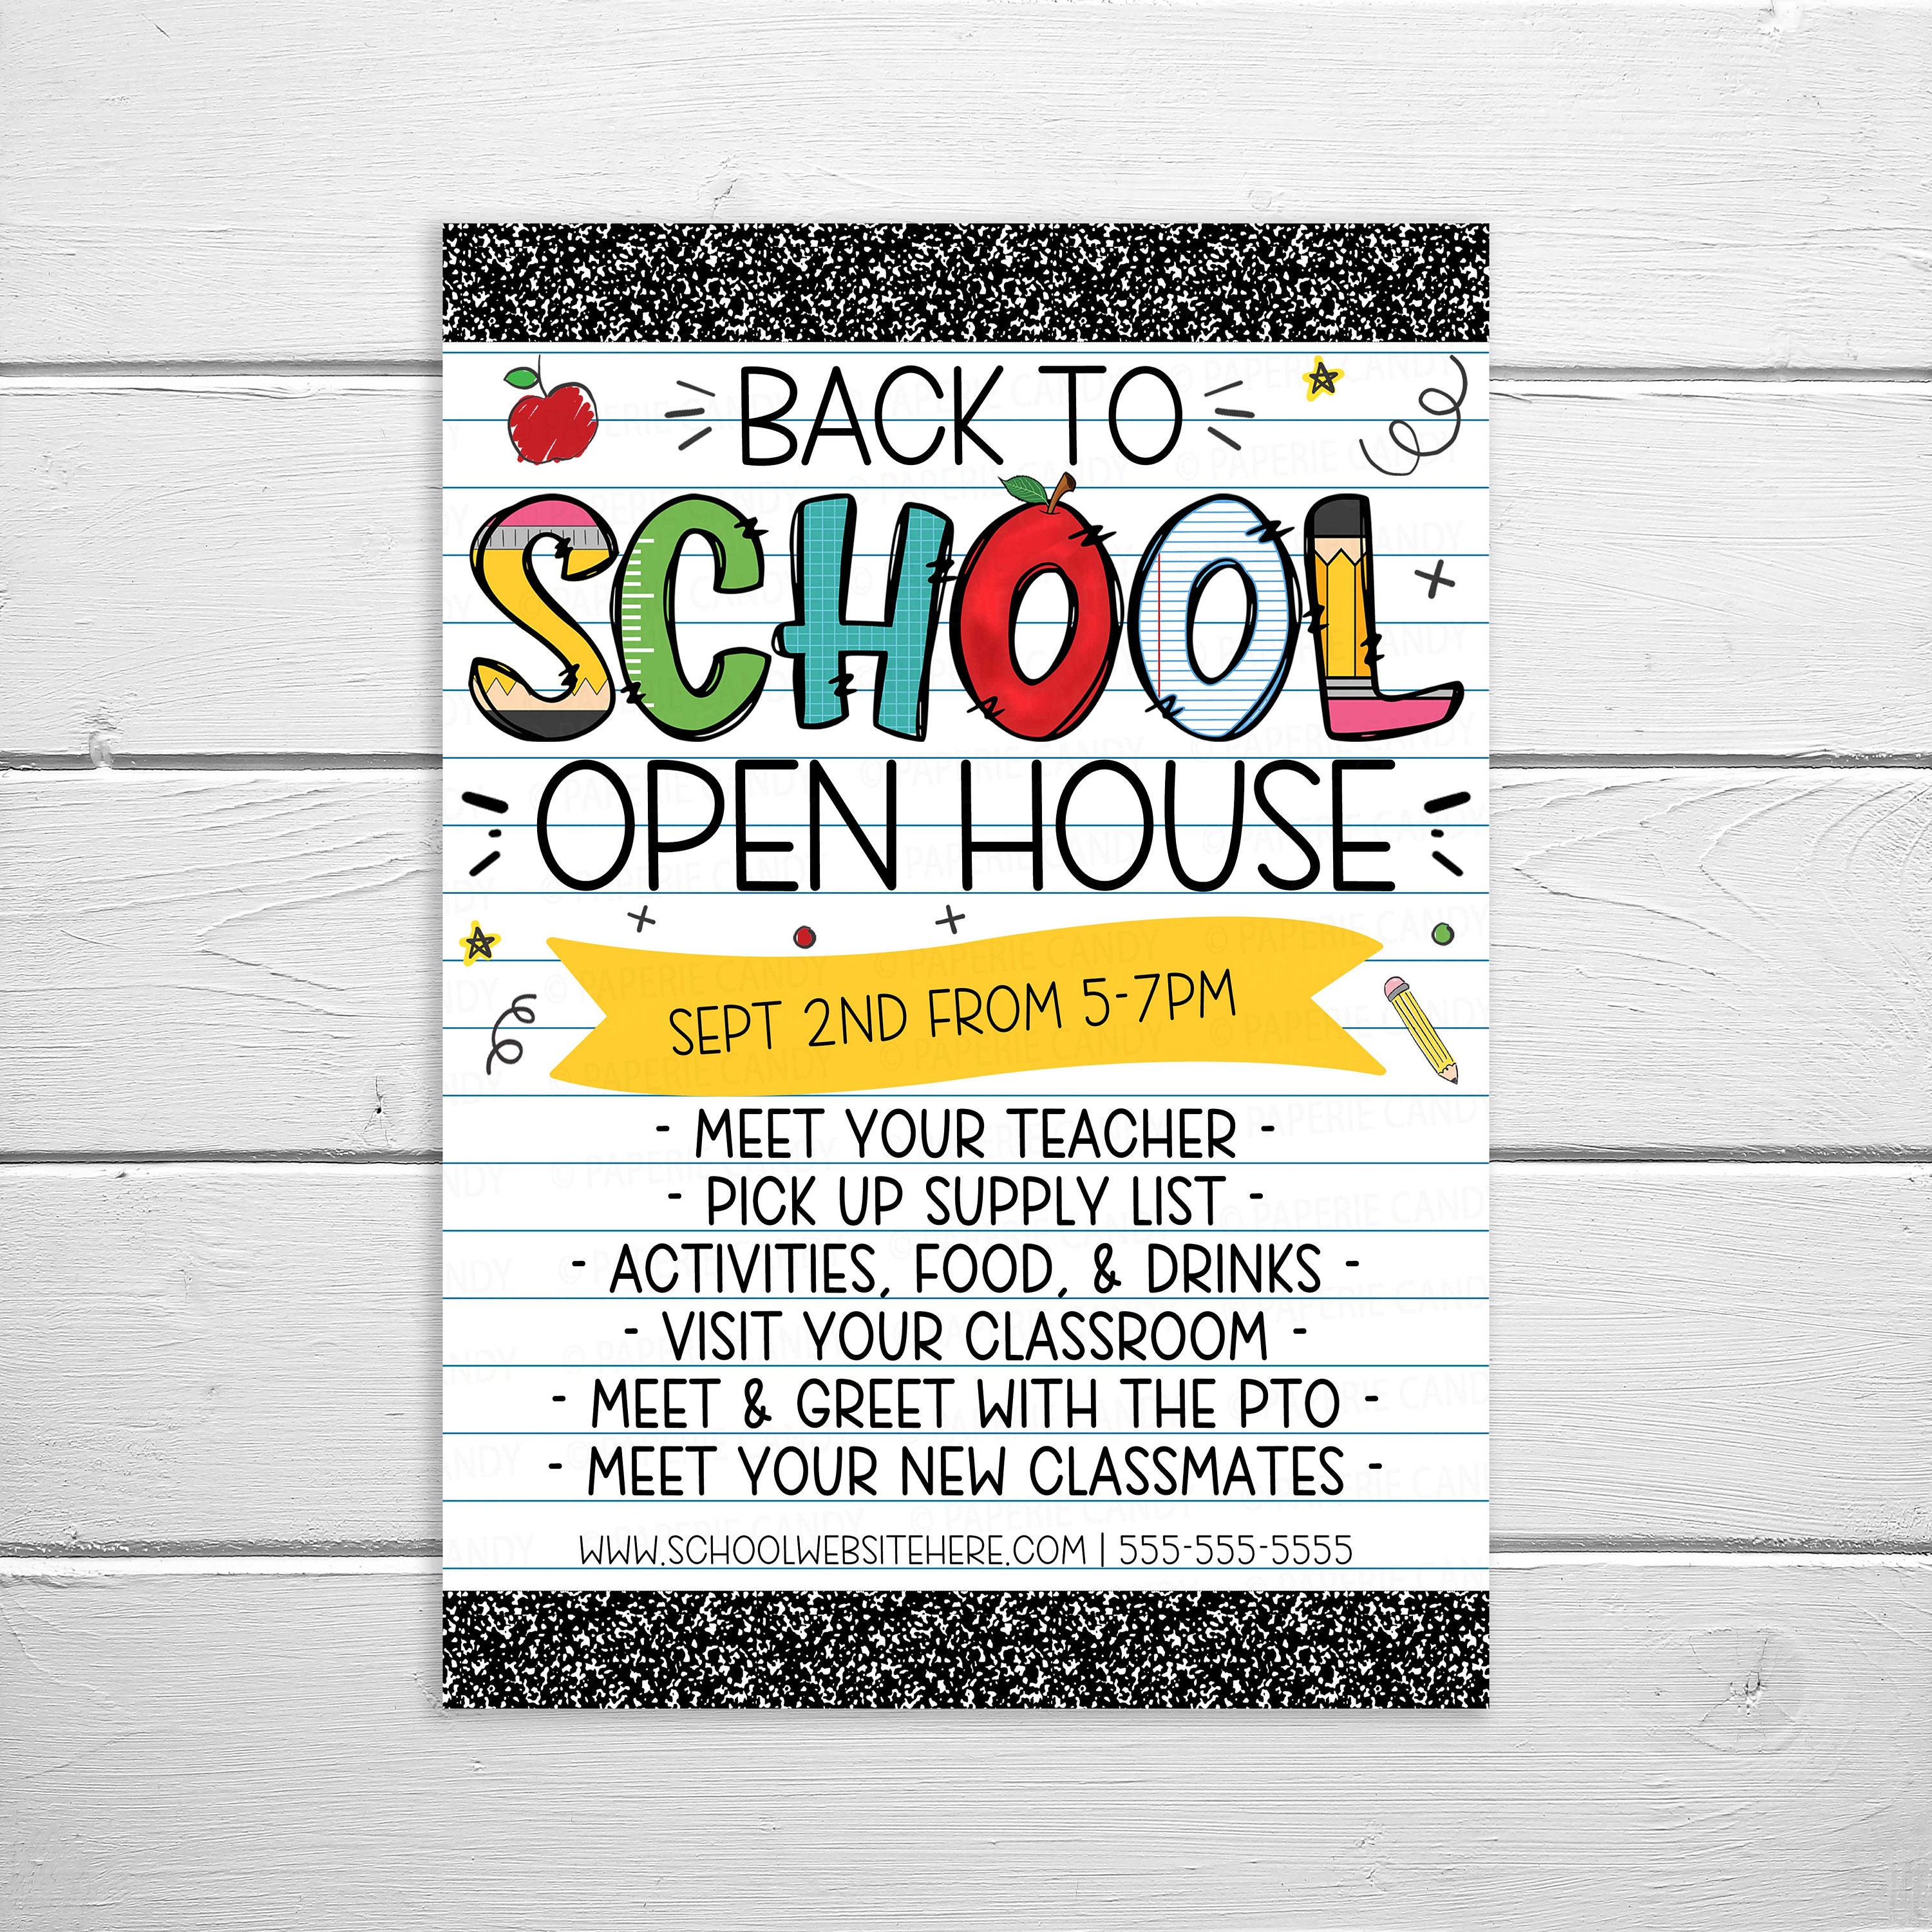 BACK TO
SCHOOL
OPEN HOUSE
SEPT 2ND FROM 5-7PM
- MEET YOUR TEACHER -
- PICK UP SUPPLY LIST -
- ACTIVITIES, FOOD, & DRINKS -
- VISIT YOUR CLASSROOM -
- MEET & GREET WITH THE PTO -
- MEET YOUR NEW CLASSMATES -
WWW.SCHOOLWEBSITEHERE.COM | 555-555-5555
© PAPERIE CANDY